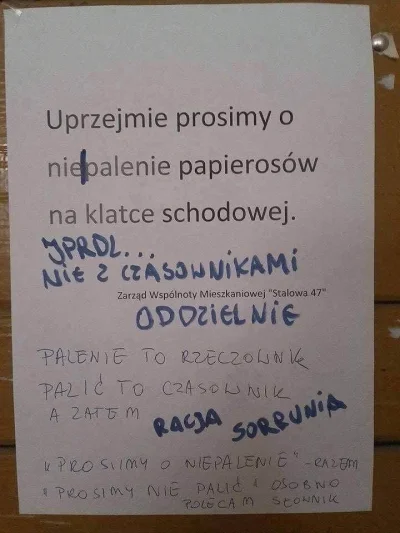 Uprzejmie prosimy o
nie|palenie papierosów
na klatce schodowej.
JPRDL...
NIE Z CZASOWNIKAMI
Zarząd Wspólnoty Mieszkaniowej "Stalowa 47"
ODDZIELNIE
PALENIE TO RZECZOWNIK
PALIĆ TO CZASOWNIK
A ZATEM
RACJA SORRUNIA
"PROSIMY O NIEPALENIE" - RAZEM
"PROSIMY NIE PALIĆ" OSOBNO
POLECAM SŁOWNIK